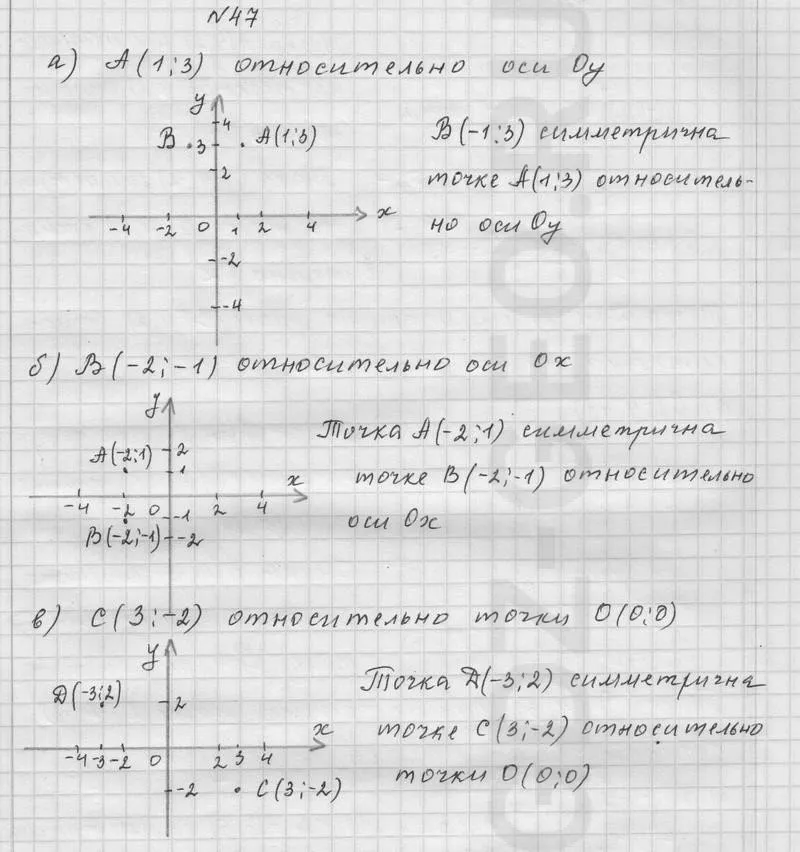 №47
а) А(1;3) относительно оси Оу
у
4
В 3 А(1;3)
2
-4 -2 0 1 2 4 х
-2
-4
В(-1;3) симметрична
точке А(1;3) относитель-
но оси Оу
б) В(-2;-1) относительно оси Ох
у
2
А(-2;1) 1
х
-4 -2 0 2 4
-1
В(-2;-1) -2
Точка А(-2;1) симметрична
точке В(-2;-1) относительно
оси Ох
в) С(3;-2) относительно точки О(0;0)
у
D(-3;2) 2
х
-4 -3 -2 0 2 3 4
-2 С(3;-2)
Точка D(-3;2) симметрична
точке С(3;-2) относительно
точки О(0;0)